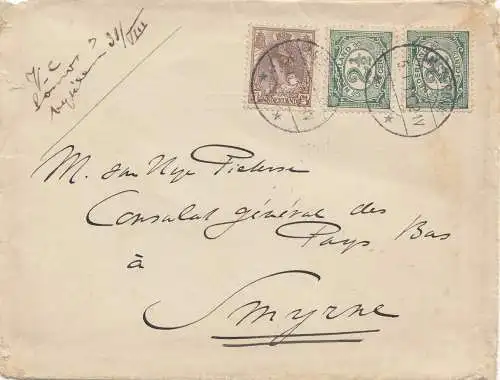 31/VIII
NEDERLAND
NEDERLAND 2½
NEDERLAND 2½
M. van Nye Pieterse
Consulat général des
Pays Bas
à
Smyrne